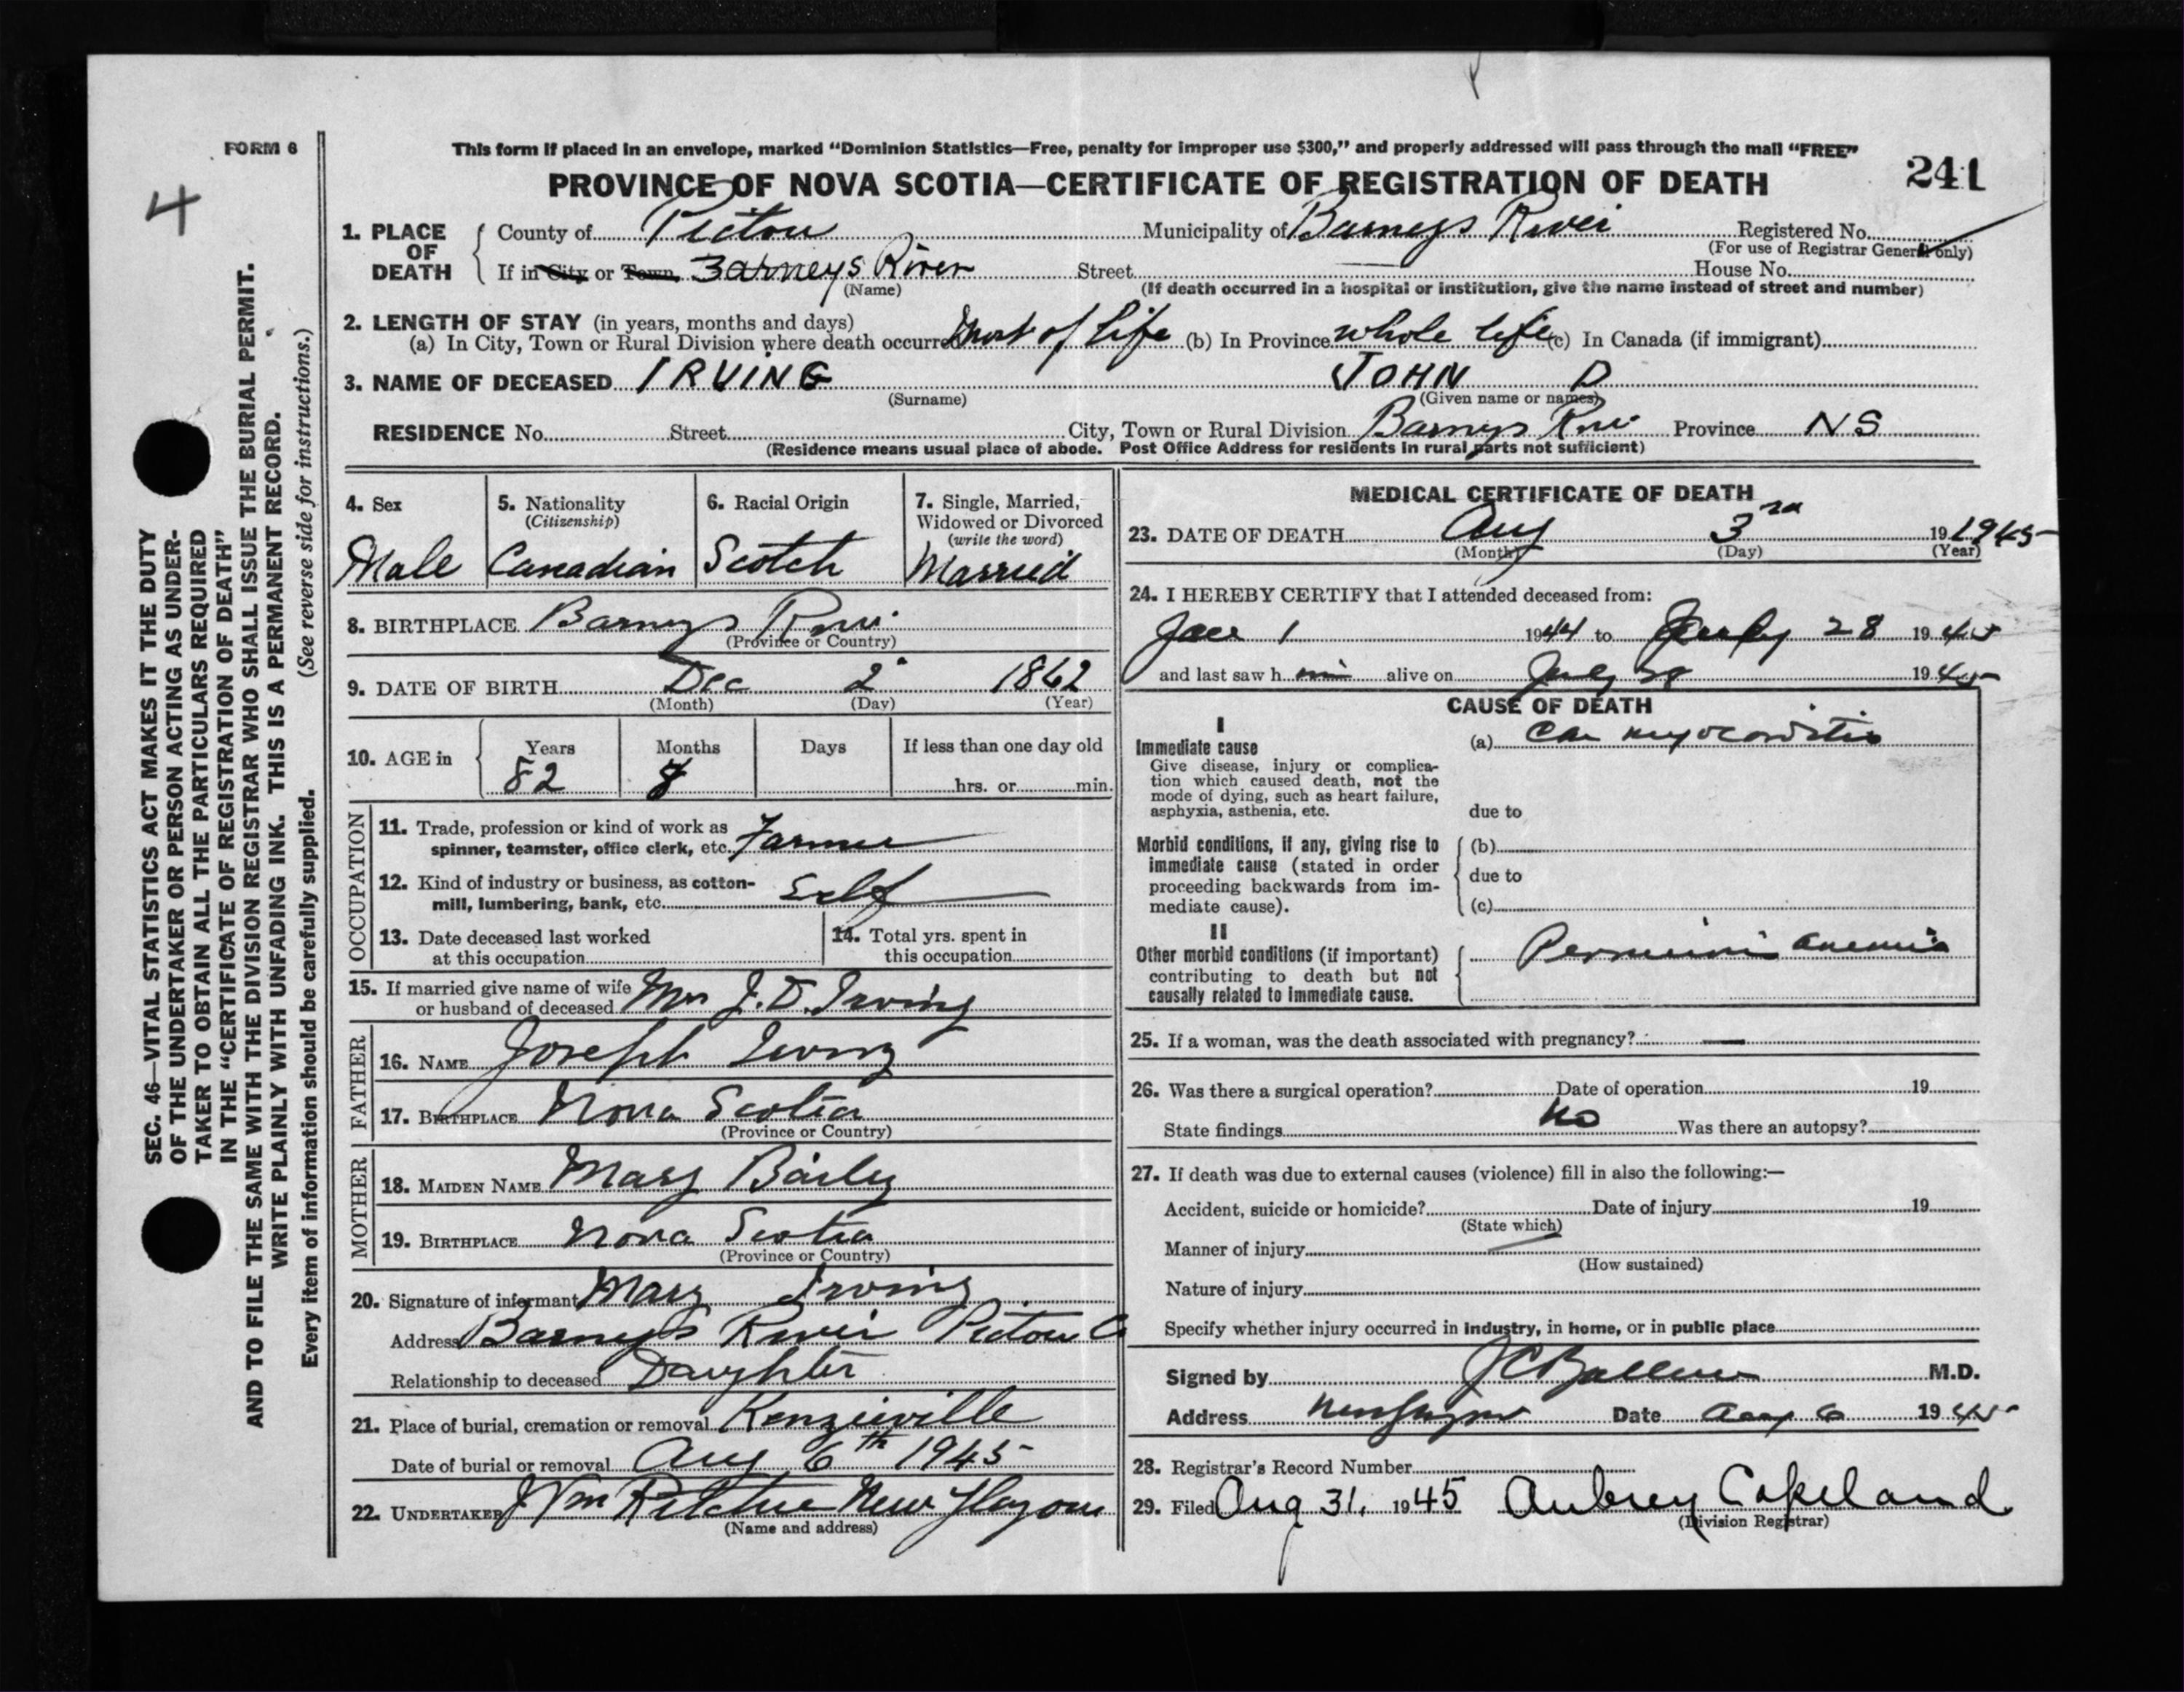 FORM 6
4
This form if placed in an envelope, marked “Dominion Statistics—Free, penalty for improper use $300,” and properly addressed will pass through the mail “FREE”
PROVINCE OF NOVA SCOTIA—CERTIFICATE OF REGISTRATION OF DEATH
241
1. PLACE OF DEATH
County of Pictou Municipality of Barneys River Registered No.
(For use of Registrar General only)
If in City or Town Barneys River Street House No.
(Name) (If death occurred in a hospital or institution, give the name instead of street and number)
2. LENGTH OF STAY (in years, months and days)
(a) In City, Town or Rural Division where death occurred Most of Life (b) In Province whole life (c) In Canada (if immigrant)
3. NAME OF DECEASED IRVING JOHN D
(Surname) (Given name or names)
RESIDENCE No. Street City, Town or Rural Division Barneys River Province NS
(Residence means usual place of abode. Post Office Address for residents in rural parts not sufficient)
4. Sex
Male
5. Nationality
(Citizenship)
Canadian
6. Racial Origin
Scotch
7. Single, Married,
Widowed or Divorced
(write the word)
Married
8. BIRTHPLACE Barneys River
(Province or Country)
9. DATE OF BIRTH Dec 2 1862
(Month) (Day) (Year)
10. AGE in
Years Months Days If less than one day old
82 8 hrs. or min.
OCCUPATION
11. Trade, profession or kind of work as
spinner, teamster, office clerk, etc. Farmer
12. Kind of industry or business, as cotton-
mill, lumbering, bank, etc. Self
13. Date deceased last worked
at this occupation
14. Total yrs. spent in
this occupation
15. If married give name of wife
or husband of deceased Mrs J. D. Irving
FATHER
16. NAME Joseph Irving
17. BIRTHPLACE Nova Scotia
(Province or Country)
MOTHER
18. MAIDEN NAME Mary Baily
19. BIRTHPLACE Nova Scotia
(Province or Country)
20. Signature of informant Mary Irving
Address Barneys River Pictou Co
Relationship to deceased Daughter
21. Place of burial, cremation or removal Kenzieville
Date of burial or removal Aug 6th 1945
22. UNDERTAKER J Wm Ritchie New Glasgow
(Name and address)
MEDICAL CERTIFICATE OF DEATH
23. DATE OF DEATH Aug 3rd 19 1945
(Month) (Day) (Year)
24. I HEREBY CERTIFY that I attended deceased from:
Jan 1 1944 to July 28 1945
and last saw h im alive on July 28 1945
CAUSE OF DEATH
I
Immediate cause
Give disease, injury or complica-
tion which caused death, not the
mode of dying, such as heart failure,
asphyxia, asthenia, etc.
(a) Chr myocarditis
due to
Morbid conditions, if any, giving rise to
immediate cause (stated in order
proceeding backwards from im-
mediate cause).
(b)
due to
(c)
II
Other morbid conditions (if important)
contributing to death but not
causally related to immediate cause.
Pernicious anemia
25. If a woman, was the death associated with pregnancy? —
26. Was there a surgical operation? Date of operation 19
State findings No Was there an autopsy?
27. If death was due to external causes (violence) fill in also the following:—
Accident, suicide or homicide? Date of injury 19
(State which)
Manner of injury
(How sustained)
Nature of injury
Specify whether injury occurred in industry, in home, or in public place
Signed by M.D.
Address New Glasgow Date Aug 6 1945
28. Registrar's Record Number
29. Filed Aug 31. 1945 Aubrey Copeland
(Division Registrar)
SEC. 46—VITAL STATISTICS ACT MAKES IT THE DUTY
OF THE UNDERTAKER OR PERSON ACTING AS UNDER-
TAKER TO OBTAIN ALL THE PARTICULARS REQUIRED
IN THE “CERTIFICATE OF REGISTRATION OF DEATH”
AND TO FILE THE SAME WITH THE DIVISION REGISTRAR WHO SHALL ISSUE THE BURIAL PERMIT.
WRITE PLAINLY WITH UNFADING INK. THIS IS A PERMANENT RECORD.
Every item of information should be carefully supplied. (See reverse side for instructions.)